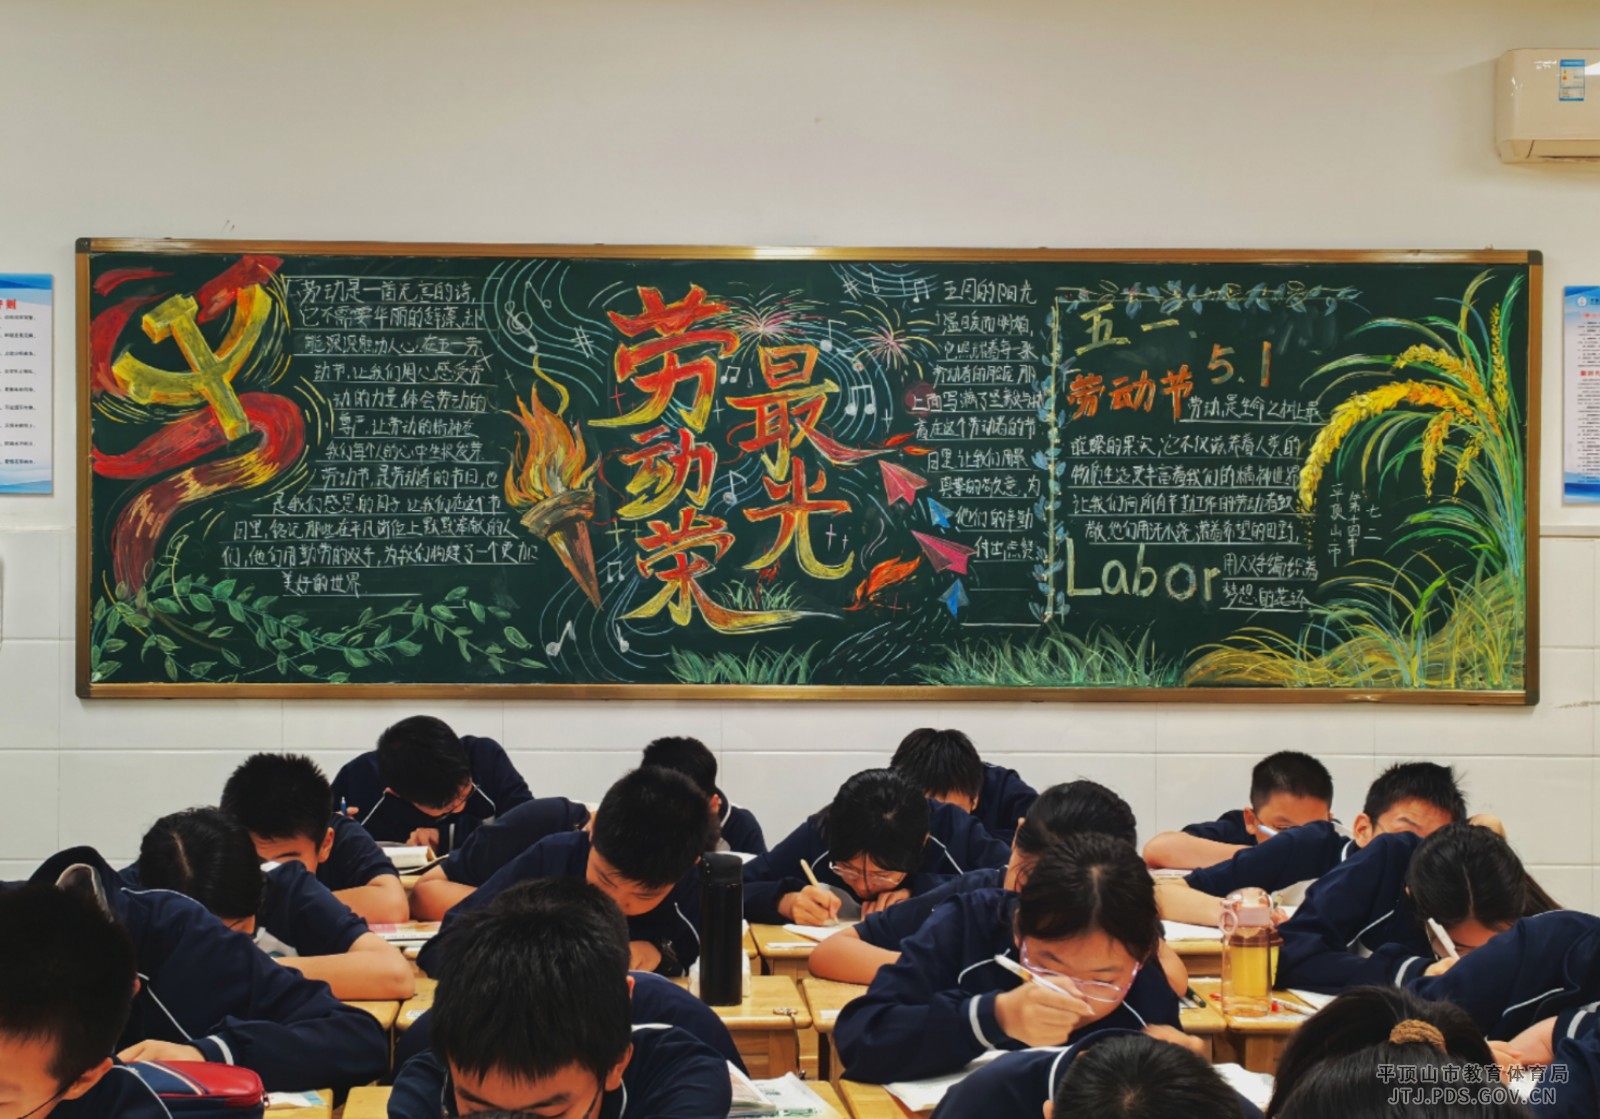 劳动是一首无言的诗,
它不需要华丽的辞藻,却
能深深触动人心.在五一劳
动节,让我们用心感受劳
动的力量,体会劳动的
尊严,让劳动的精神在
我们每个人的心中生根发芽
劳动节,是劳动者的节日,也
是我们感恩的日子 让我们在这个节
日里,铭记那些在平凡岗位上默默奉献的人
们,他们用勤劳的双手,为我们构建了一个更加
美好的世界.
劳动最光荣
五月的阳光
温暖而明媚,
它照耀着每一张
劳动者的脸庞 那
上面写满了坚毅与
在这个劳动者的节
日里,让我们用最
真挚的敬意,为
他们的辛勤
付出点赞
五一
劳动节 5.1
劳动,是生命之树上最
璀璨的果实,它不仅滋养着人类的
物质生活更丰富着我们的精神世界
让我们向所有辛勤工作的劳动者致
敬,他们用汗水浇灌着希望的田野,
用双手编织着
梦想的花环
Labor
平顶山市
第十四中
七二
平顶山市教育体育局
JTJ.PDS.GOV.CN